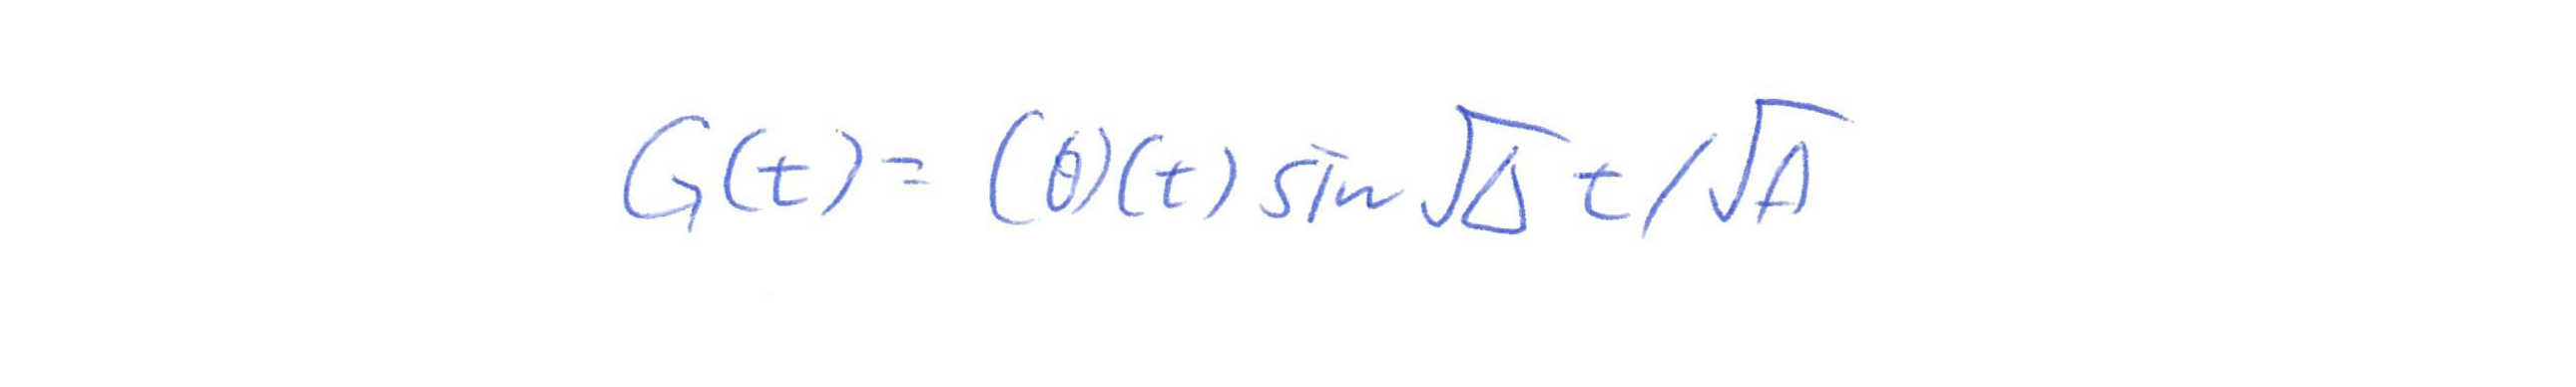 G(t) = (θ)(t) sin √Δ t / √A